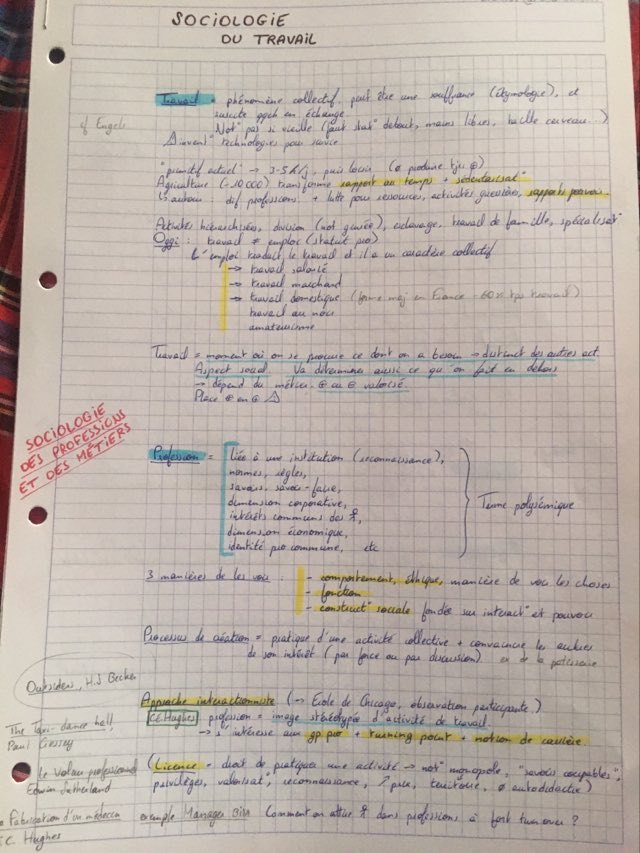 SOCIOLOGIE
DU TRAVAIL
Travail = phénomène collectif, peut être une souffrance (étymologie), et
suscite qqch en échange
cf Engels
Not° pas si vieille (faut stat° debout, mains libres, taille cerveau...)
technologies pour survie
"primitif actuel" → 3-5h/j, puis loisir
Agriculture (-10 000) transforme rapport au temps + sédentarisat°
dif professions + lutte pour ressources, activités guerrières, rapports pouvoir
Activités hiérarchisées, division, esclavage, travail de famille, spécialisat°
Oggi : travail ≠ emploi (statut pro)
L'emploi traduit le travail et il a un caractère collectif
→ travail salarié
→ travail marchand
→ travail domestique (forme maj en France - 60% tps travail)
travail au noir
amateurisme
Travail = moment où on se procure ce dont on a besoin → distinct des autres act.
Aspect social. Va déterminer aussi ce qu'on fait en dehors
→ dépend du métier. ⊕ ou ⊖ valorisé.
Place
SOCIOLOGIE
DES PROFESSIONS
ET DES MÉTIERS
Profession = liée à une institution (reconnaissance),
normes, règles,
savoirs, savoir-faire,
dimension corporative,
intérêts communs des
dimension économique,
identité pro commune, etc
Terme polysémique
3 manières de les voir :
- comportement, éthique, manière de voir les choses
- fonction
- construct° sociale fondée sur interact° et pouvoir
Processus de création = pratique d'une activité collective + convaincre les autres
de son intérêt (par force ou par discussion) ex de la patisserie
Outsiders, H.S Becker
Approche interactionniste (→ Ecole de Chicago, observation participante)
The Taxi-dance hall,
Paul Cressey
C.E. Hughes profession = image stéréotypée d'activité de travail
→ s'intéresse aux gp pro + turning point + notion de carrière
Le Voleur professionnel
Edwin Sutherland
(Licence = droit de pratiquer une activité → not° monopole, "savoirs coupables",
privilèges, valorisat°, reconnaissance, ↗ prix, territoire, ø autodidacte)
La Fabrication d'un médecin
E.C. Hughes
exemple Manager Comment on attire dans professions à fort turn over ?